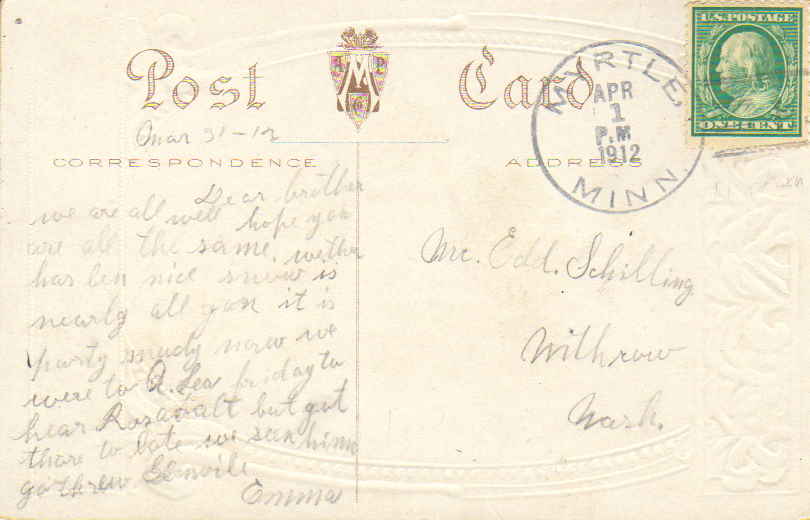 Post Card
A P
M
C
U.S. POSTAGE
ONE CENT
MYRTLE,
APR
1
P.M
1912
MINN.
Mar 31-12
CORRESPONDENCE
ADDRESS
Dear brother
we are all well hope you
are all the same. wether
has ben nice snow is
nearly all gon it is
party mudy now we
were to A. Lea friday to
hear Rosavalt but got
thare to late we seen him
go threw Glenvile
Emma
Mr. Edd. Schilling
Withrow
Wash.